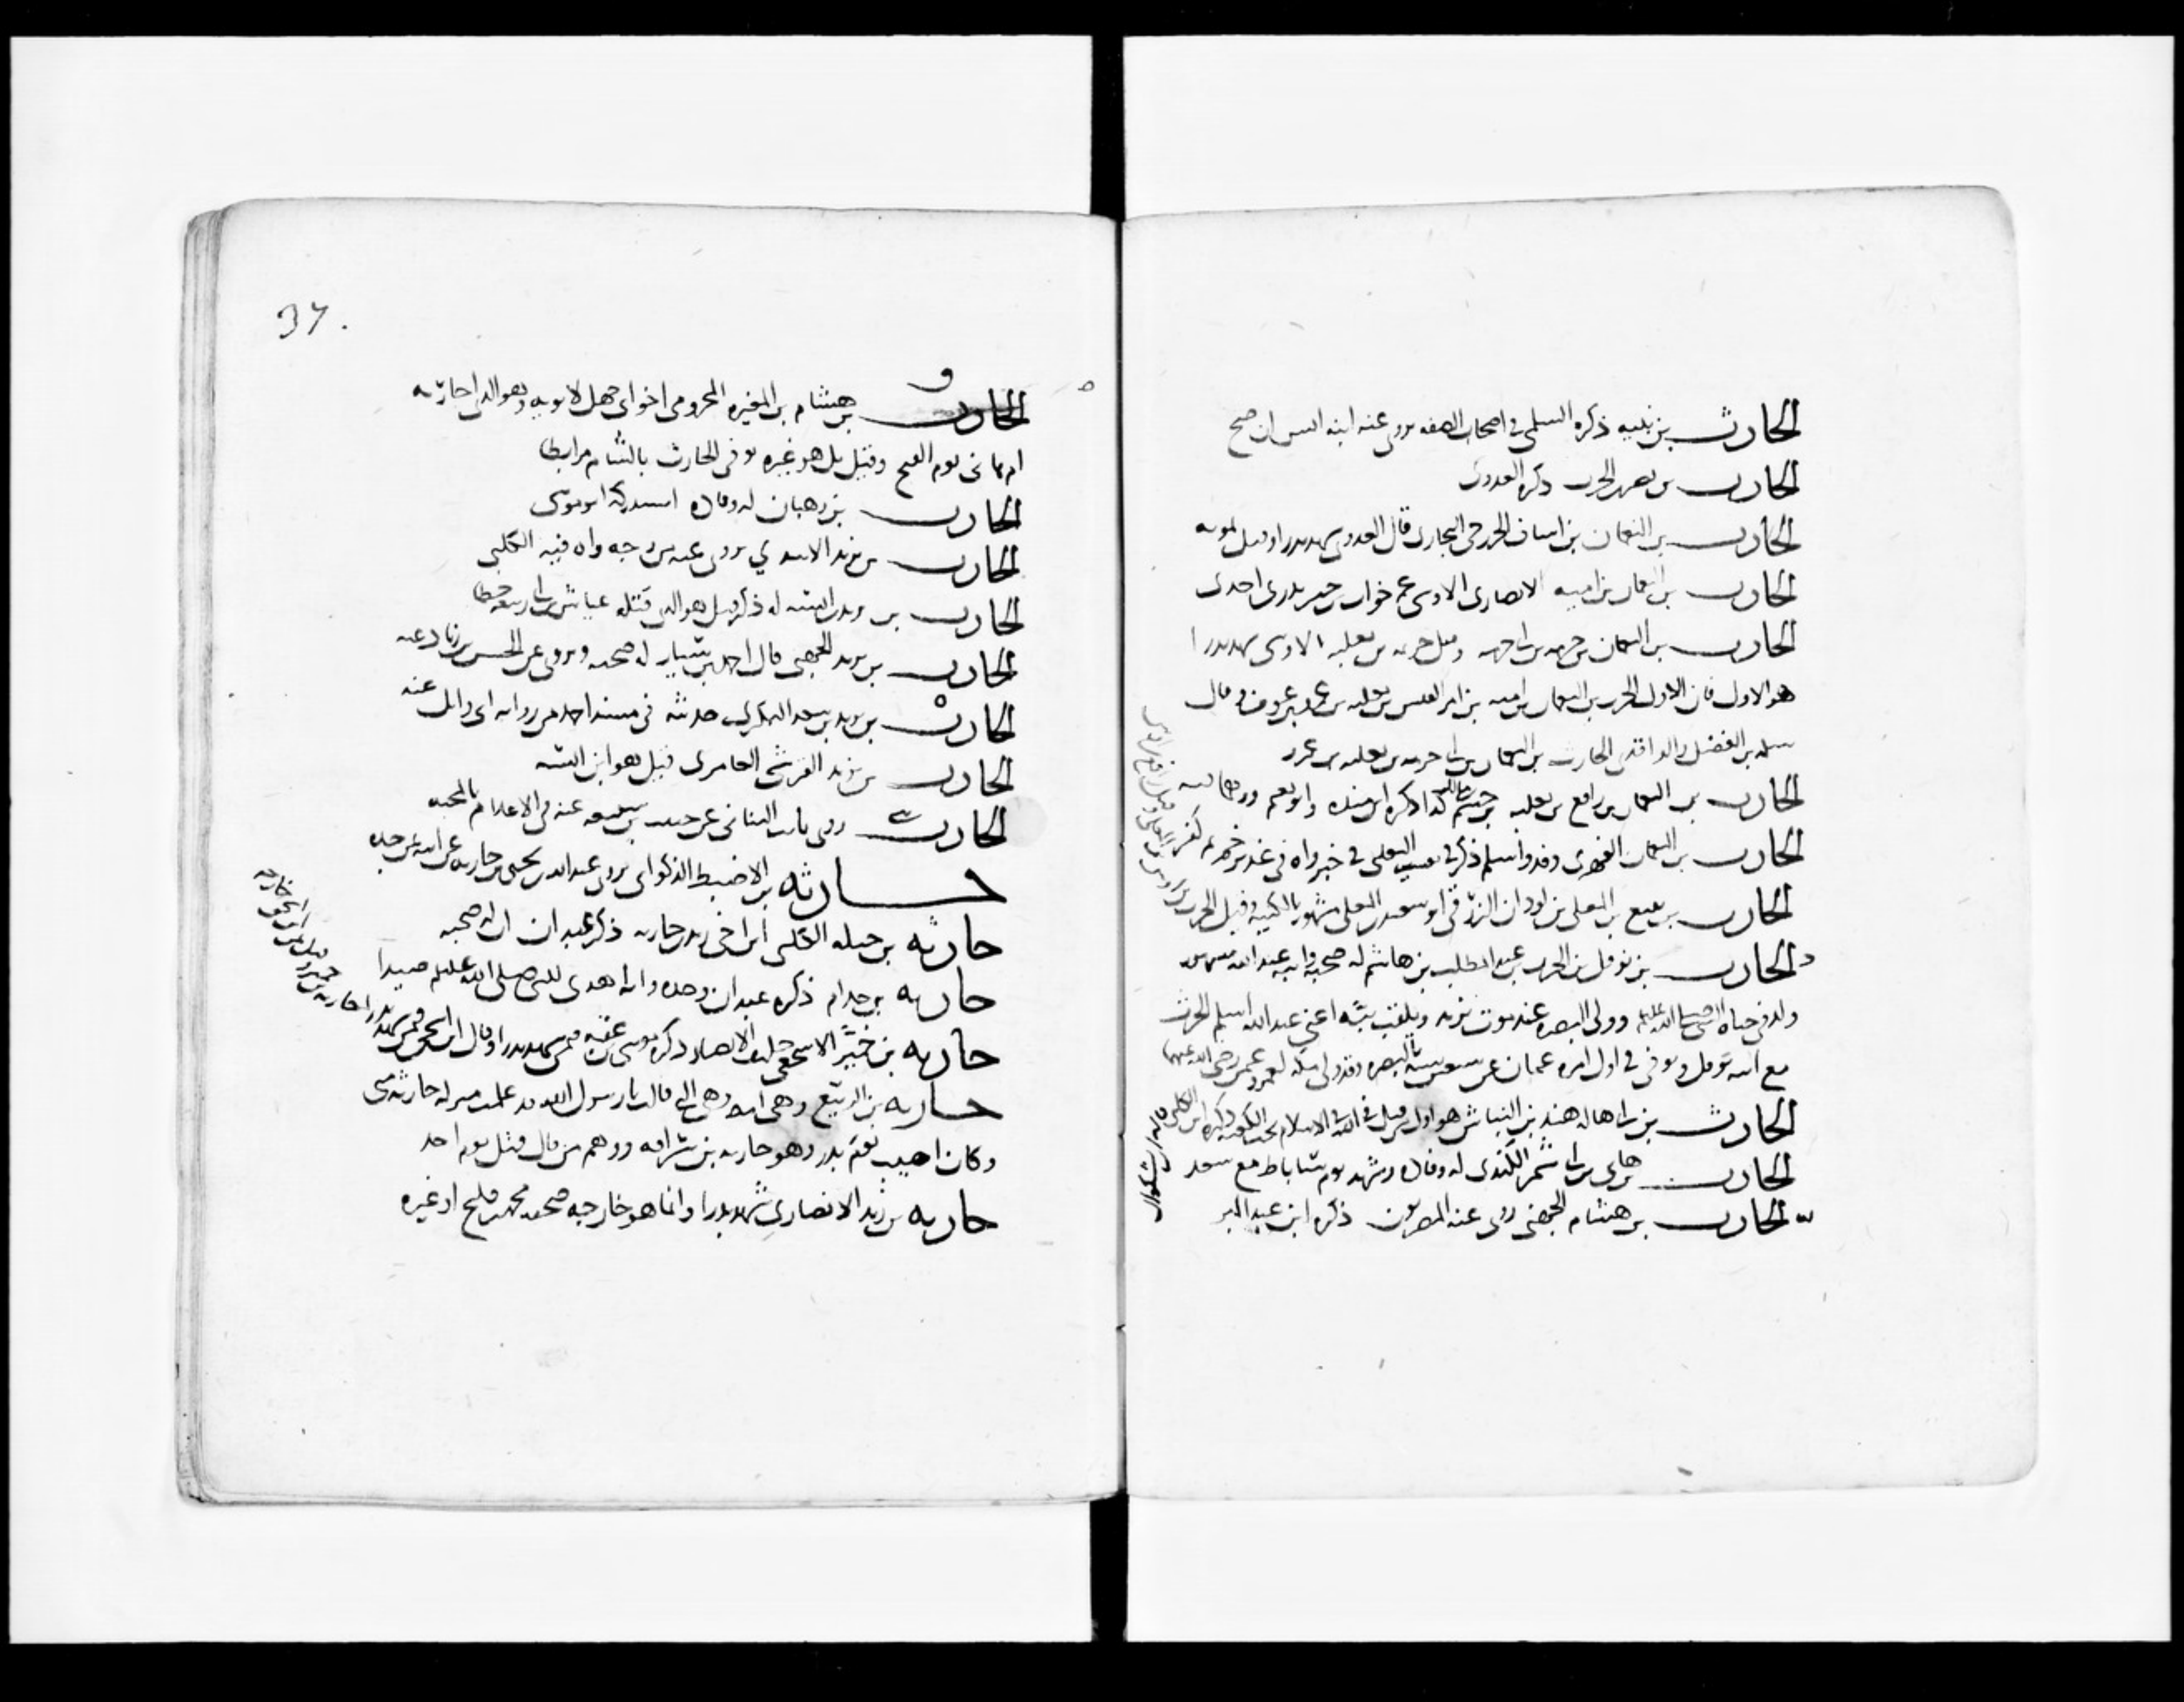 الحارث بن نبيه ذكره السلمي في اصحاب الصفه روى عنه ابنه انس ان صح
الحارث بن نصر الحرب ذكره العدوى
الحارث بن النعمان بن اساف الخزرجى النجارى قال العدوى شهد بدرا وقتل بموته
الحارث بن النعمان بن اميه الانصارى الاوسى عم خوات بن جبير بدرى احدى
الحارث بن النعمان بن خزمه بن ابى خزمه وقيل خزيمه بن ثعلبه الاوسى شهد بدرا
هو الاول فان الاول الحرث بن النعمان بن اميه بن امر القيس بن ثعلبه بن عمرو بن عوف وقال
سلمه بن الفضل والواقدى الحارث بن النعمان بن ابى خزمه بن ثعلبه بن عمرو
الحارث بن النعمان بن رافع بن ثعلبه بن جشم بن مالك كذا ذكره ابن منده وابو نعيم
الحارث بن النعمان الفهرى وفد واسلم ذكره في تفسير الثعلبى في خبر واه في غدير خم ثم كفر
الحارث بن نفيع بن المعلى بن لوذان الزرقى ابو سعيد بن المعلى مشهور بالكنيه وقيل الحرث بن اوس بن المعلى وقيل رافع بن اوس
الحارث بن نوفل بن الحرث بن عبد المطلب بن هاشم له صحبة وابنه عبد الله
ولد في حياة النبى صلى الله عليه وولى البصره عند موت يزيد ويلقب ببّه اعنى عبد الله اسلم الحرث
مع ابيه نوفل وتوفى في اول امره عثمان عن سبعين سنه بالبصره وقد ولى مكه لعمر وعمر رضى الله عنهما
الحارث بن ابى هاله هند بن النباش هو اول من قتل في الله في الاسلام تحت الكعبه ذكره ابن الكلبى
الحارث بن هانى بن ابى شمر الكندى له وفاده وشهد يوم ساباط مع سعد
الحارث بن هشام الجهنى روى عنه المصريون ذكره ابن عبد البر
37.
الحارث بن هشام بن المغيره المخزومى اخو ابى جهل لابويه وهو الذى اجارته
ام هانى يوم الفتح وقيل بل هو غيره توفى الحارث بالشام مرابطا
الحارث بن وهبان له وفاده استدركه ابو موسى
الحارث بن يزيد الاسدي يروى عنه من وجه واه فيه الكلبى
الحارث بن يزيد بن انيسه له ذكر قيل هو الذى قتله عياش بن ابى ربيعه خطا
الحارث بن يزيد الجهنى قال احمد بن سيار له صحبه ويروى عن الحسن بن زياد عنه
الحارث بن يزيد بن سعد البكرى حديثه في مسند احمد من روايه ابى وائل عنه
الحارث بن يزيد القرشى العامرى قيل هو ابن انيسه
الحارث روى ثابت البنانى عن حبيب بن سبيعه عنه في الاعلام بالمحبه
حارثه بن الاضبط الذكوانى يروى عبد الله بن يحيى بن حارثه عن ابيه عن جده
حارثه بن جبله الكلبى ابن اخى زيد بن حارثه ذكر عبدان ان له صحبه
حارثه بن حدام ذكره عبدان وحده وانه اهدى للنبى صلى الله عليه صيدا
حارثه بن خمير الاشجعى حليف الانصار ذكره موسى بن عقبه فيمن شهد بدرا وقال ابن اسحق فيمن شهد بدرا حارثه بن خمير
حارثه بن الربيع وهى امه وهى التى قالت يا رسول الله قد علمت منزله حارثه منى
وكان اصيب يوم بدر وهو حارثه بن سراقه ووهم من قال قتل يوم احد
حارثه بن زيد الانصارى شهد بدرا وانما هو خارجه صحفه محمد بن فليح او غيره